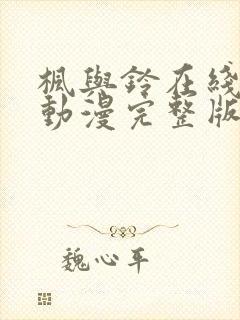 楓與鈴在綫
動漫完整版
魏心平